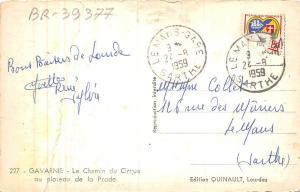 BR-39377
LE MANS-GARE
24-8
1959
SARTHE
LE MANS-GARE
24-8
1959
SARTHE
Bons Baisers de Lourdes
Yvette
René
Sylvie
116 rue des
Le Mans
(Sarthe)
227 - GAVARNIE - Le Chemin du Cirque
au plateau de la Prade
Edition QUINAULT, Lourdes